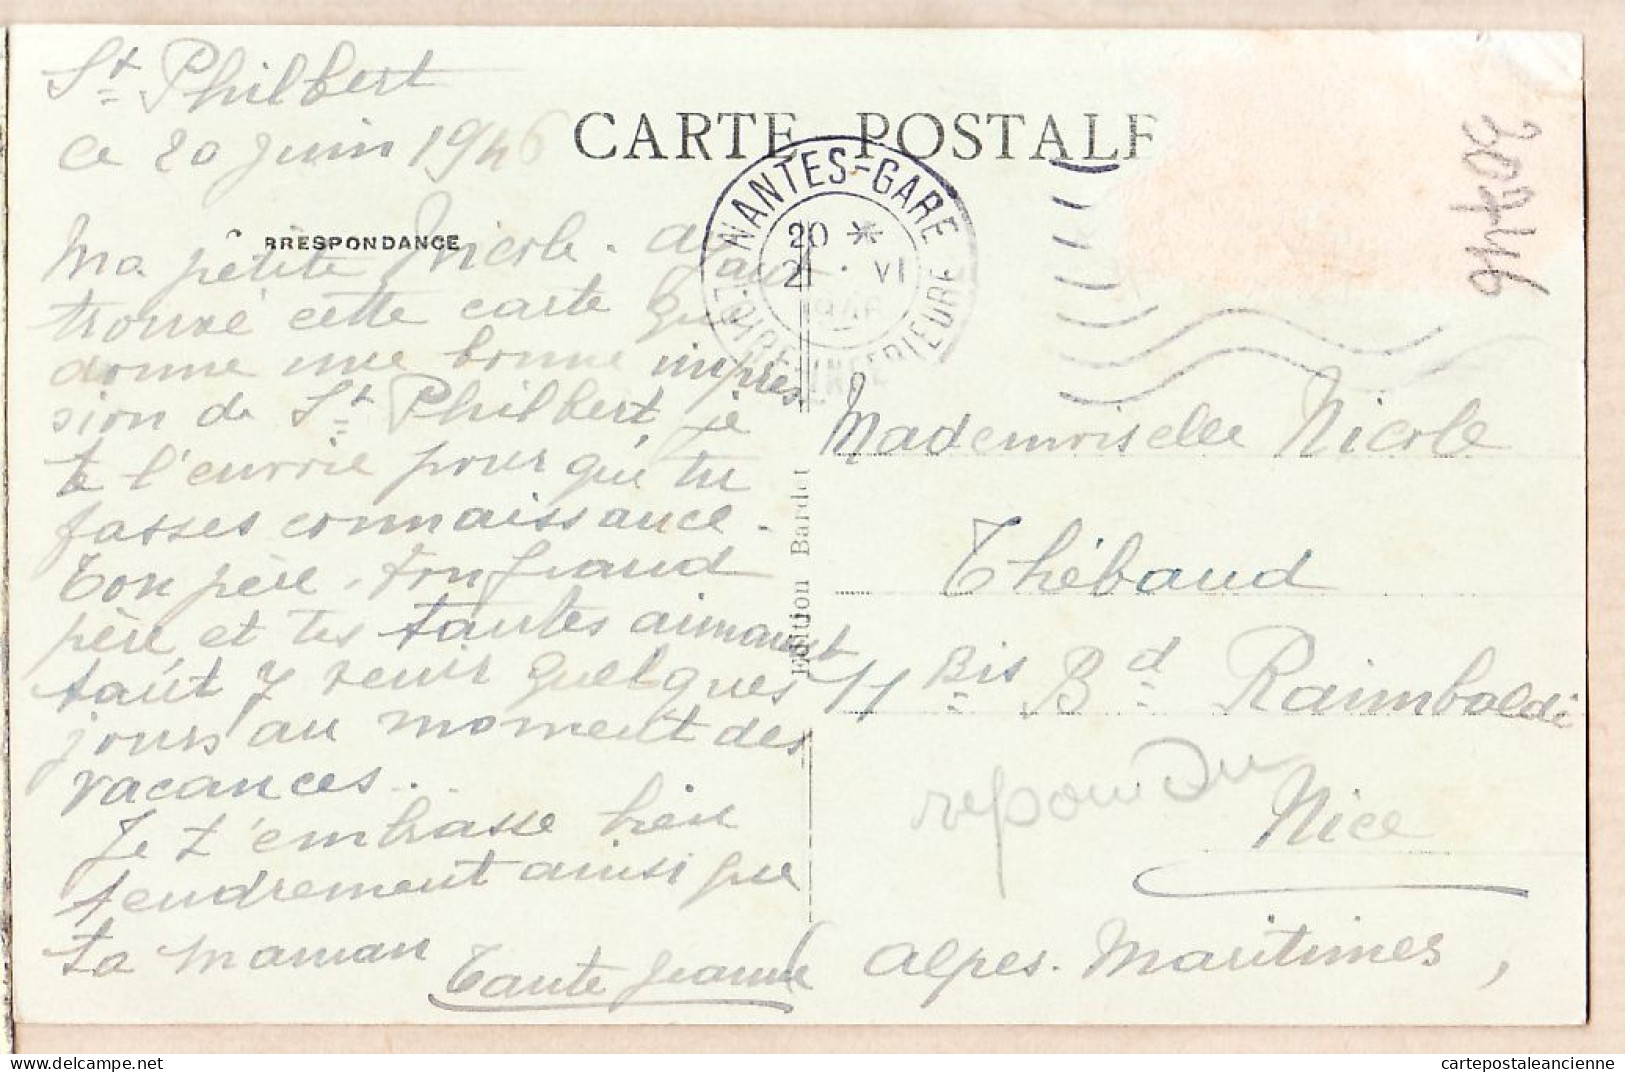 St Philbert
ce 20 juin 1946
CARTE POSTALE
RRESPONDANCE
NANTES-GARE
20 *
21 · VI
1946
LOIRE-INFERIEURE
Ma petite Nicole. ayant
trouvé cette carte qui
donne une bonne impres
sion de St Philbert, je
te l'envoie pour que tu
fasses connaissance.
Ton père, ton grand
père et tes tantes aimaient
tant y venir quelques
jours au moment des
vacances..
Je t'embrasse bien
tendrement ainsi que
ta maman
Tante Jeanne
Edition Bardet
Mademoiselle Nicole
Thébaud
11 Bis Bd Raimbaldi
Nice
Alpes. Maritimes,
repondu
cartepostaleancienne